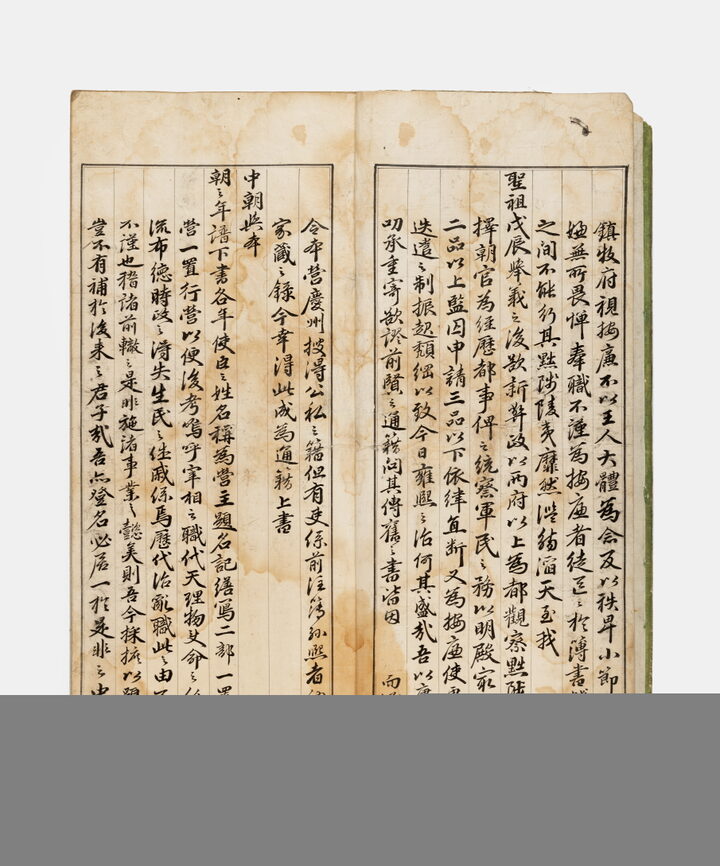 鎮牧府視按廉不以王人大體為念反以秩卑小節
婦無所畏憚奉職不謹為按廉者徒區〻於簿書
之間不能行其黜陟陵夷靡然滋弊滔天至我
聖祖戊辰擧義之後欲新弊政以兩府以上為都觀察黜陟
擇朝官為経歷都事俾之統察軍民之務以明殿㝡
二品以上監囚申請三品以下依律直断又為按廉使
迭遣之制振起頽綱以致今日雍熙之治何其盛哉吾以
叨承重寄欲證前賢之通籍問其傳舊之書皆因
令本營慶州搜得公私之籍但有吏係前注簿孫熙者
家藏之錄今幸得此成為通籍上書
中朝與本
朝之年譜下書各年使臣之姓名稱為營主題名記繕寫二部一置
營一置行營以便後考嗚呼宰相之職代天理物其命之
流布德時政之得失生民之休戚係焉歷代治亂職此之由
不謹也稽諸前轍之是非施諸事業之懿美則吾今採摭以
豈不有補於後来之君子哉吾亦登名必居一於是非之中